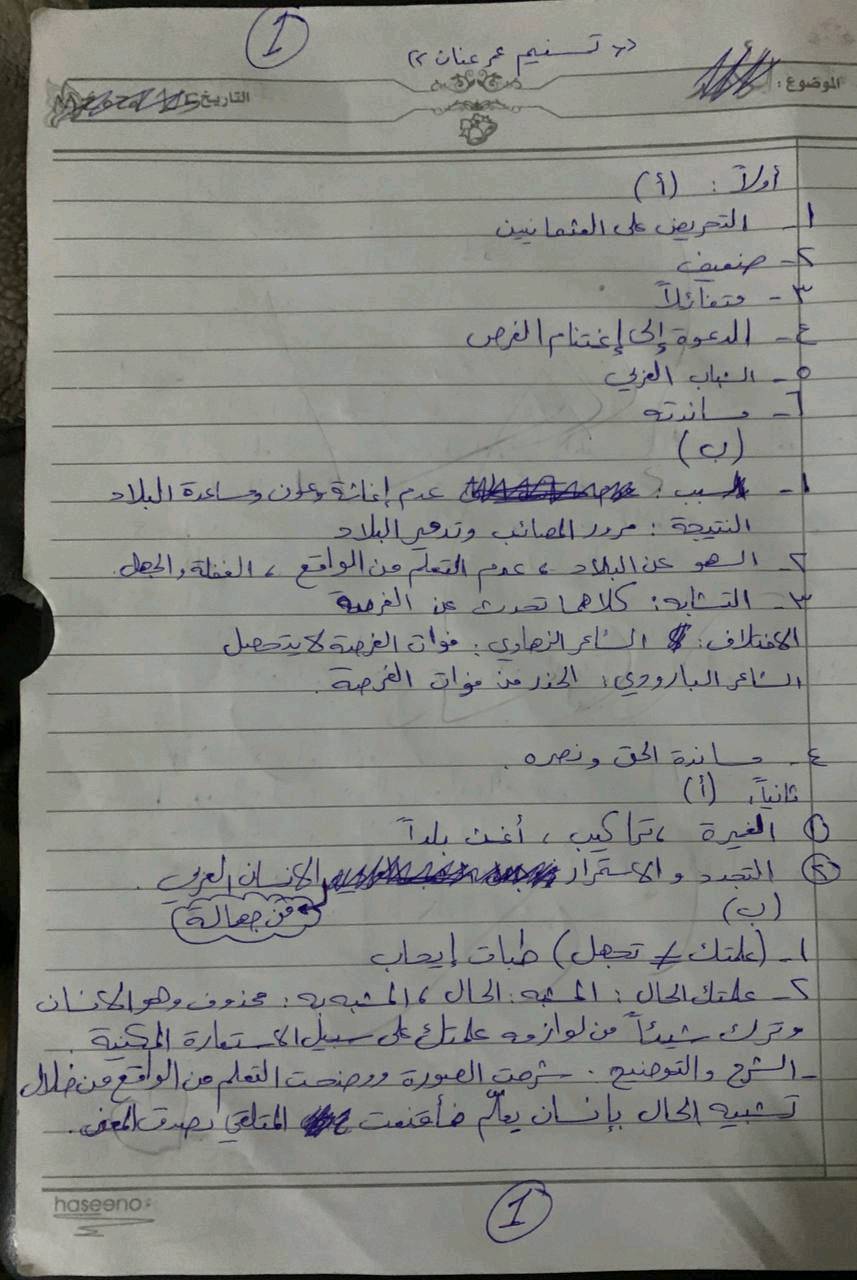 1
« تسنيم عمر عنان »
الموضوع :
التاريخ
أولاً : (أ)
١- التحريض على العثمانيين
٢- ضعيف
٣- متفائلاً
٤- الدعوة إلى إغتنام الفرص
٥- الشباب العربي
٦- مساندته
(ب)
١- السبب : عدم إغاثة وعون ومساعدة البلاد
النتيجة : مرور المصائب وتدمير البلاد
٢- السهو عن البلاد ، عدم التعلم من الواقع ، الغفلة والجهل.
٣- التشابه : كلاهما تحدث عن الفرصة
الاختلاف : الشاعر الزهاوي : فوات الفرصة لا يتحصل
الشاعر البارودي : الحذر من فوات الفرصة .
٤- مساندة الحق ونصره .
ثانياً : (أ)
١ الغيرة ، تراكيب ، أغث بلداً
٢ التجدد والاستمرار الانسان العربي .
من جهالة
(ب)
١- (علمتك ≠ تجهل) طباق إيجاب
٢- علمتك الحال : المشبه : الحال ، المشبه به : محذوف وهو الانسان
وترك شيئاً من لوازمه علمتك على سبيل الاستعارة المكنية .
- الشرح والتوضيح : شرحت الصورة ووضحت التعلم من الواقع من خلال
تشبيه الحال بإنسان يعلّم فأقنعت المتلقي بصدق المعنى .
haseeno
1